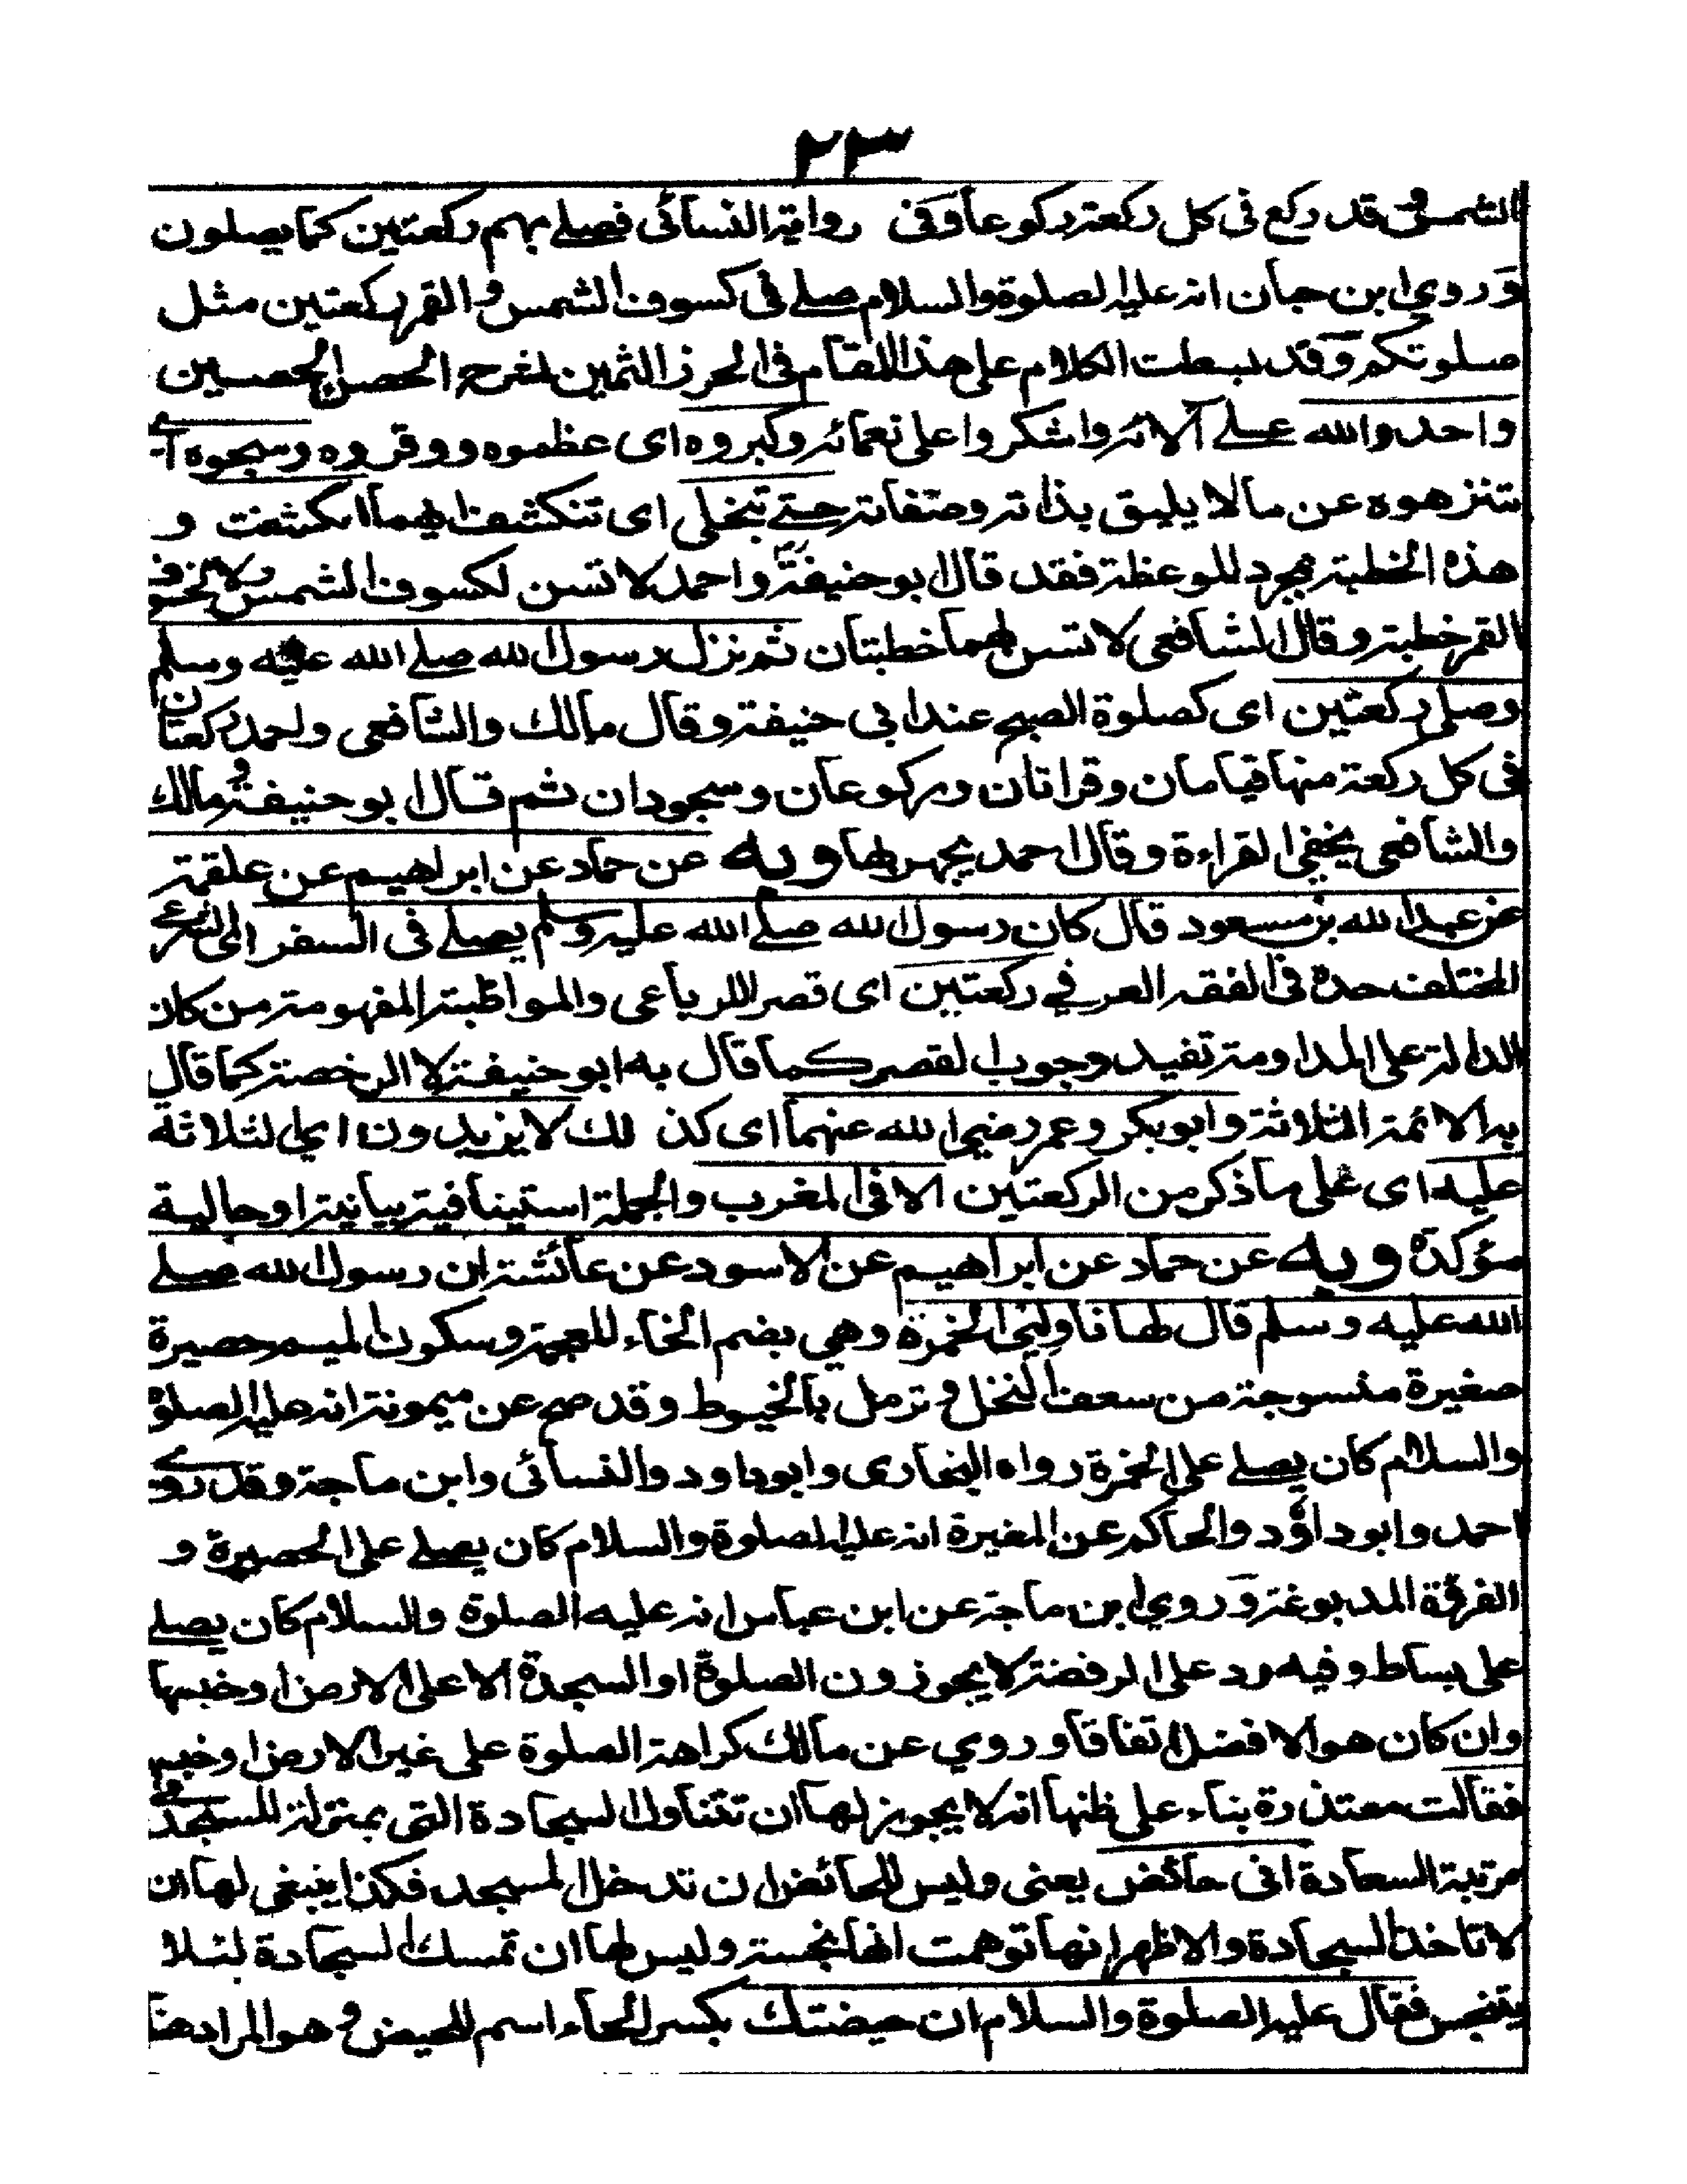 ٢٣
الشمس وقد ركع في كل ركعة ركوعا وفي رواية النسائي فصلے بهم ركعتين كما يصلون
وروي ابن حبان انه عليه الصلوة والسلام صلے في كسوف الشمس والقمر ركعتين مثل
صلوتكم وقد بسطت الكلام على هذا المقام في الحرز الثمين لشرح الحصن الحصين
واحدوا الله علے آلائه واشكروا على نعمائه وكبروه اى عظموه ووقروه وسبحوه اے
تنزهوه عن مالا يليق بذاته وصفاته حتے تنجلي اى تنكشف ايهما انكشفت و
هذه الخطبة مجرد للموعظة فقد قال ابوحنيفة واحمد لا تسن لكسوف الشمس ولا لخسوف
القمر خطبة وقال الشافعي لا تسن لهما خطبتان ثم نزل رسول الله صلے الله عليه وسلم
وصلى ركعتين اى كصلوة الصبح عند ابي حنيفة وقال مالك والشافعي واحمد ركعتان
في كل ركعة منها قيامان وقراتان وركوعان وسجودان ثم قال ابو حنيفة ومالك
والشافعي يخفي القراءة وقال احمد يجهر بها وبه عن حماد عن ابراهيم عن علقمة
عن عبد الله بن مسعود قال كان رسول الله صلے الله عليه وسلم يصلے في السفر اى الشرعي
المختلف حده في الفقه العرفي ركعتين اى قصر اللرباعي والمواظبة المفهومة من كان
الدالة على المداومة تفيد وجوب القصر كما قال به ابو حنيفة لا الرخصة كما قال
به الائمة الثلاثة وابو بكر وعمر رضي الله عنهما اى كذلك لا يزيدون اى الثلاثة
عليه اى على ما ذكر من الركعتين الا في المغرب والجملة استينافية بيانية او حالية
مؤكدة وبه عن حماد عن ابراهيم عن الاسود عن عائشة ان رسول الله صلے
الله عليه وسلم قال لها ناوليني الخمرة وهي بضم الخاء المعجمة وسكون الميم حصيرة
صغيرة منسوجة من سعف النخل و ترمل بالخيوط وقد صح عن ميمونة انه عليه الصلوة
والسلام كان يصلے على الخمرة رواه البخارى وابوداود والنسائي وابن ماجة وقد روے
احمد وابوداؤد والحاكم عن المغيرة انه عليه الصلوة والسلام كان يصلے على الحصيرة و
الفروة المدبوغة وروي ابن ماجة عن ابن عباس انه عليه الصلوة والسلام كان يصلے
على بساط وفيه رد على الرفضة لا يجوزون الصلوة او السجدة الا على الارض او خبسها
وان كان هو الافضل اتفاقا وروي عن مالك كراهة الصلوة على غير الارض او خبس
فقالت معتذرة بناء على ظنها انه لا يجوز لها ان تتناول السجادة التي بمنزلة المسجد في
مرتبة السعادة انى حائض يعنى وليس للحائض ان تدخل المسجد فكذا ينبغي لها ان
لا تاخذ السجادة والاظهر انها توهمت انها نجسة وليس لها ان تمسك السجادة لئلا
يتنجس فقال عليه الصلوة والسلام ان حيضتك بكسر الحاء اسم للحيض و هو المراد هنا